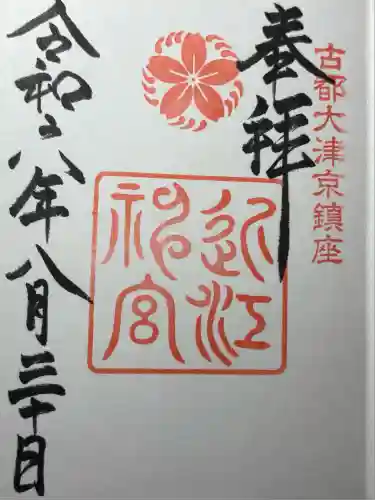 古都大津京鎮座
奉拝
近江
神宮
令和六年八月三十日